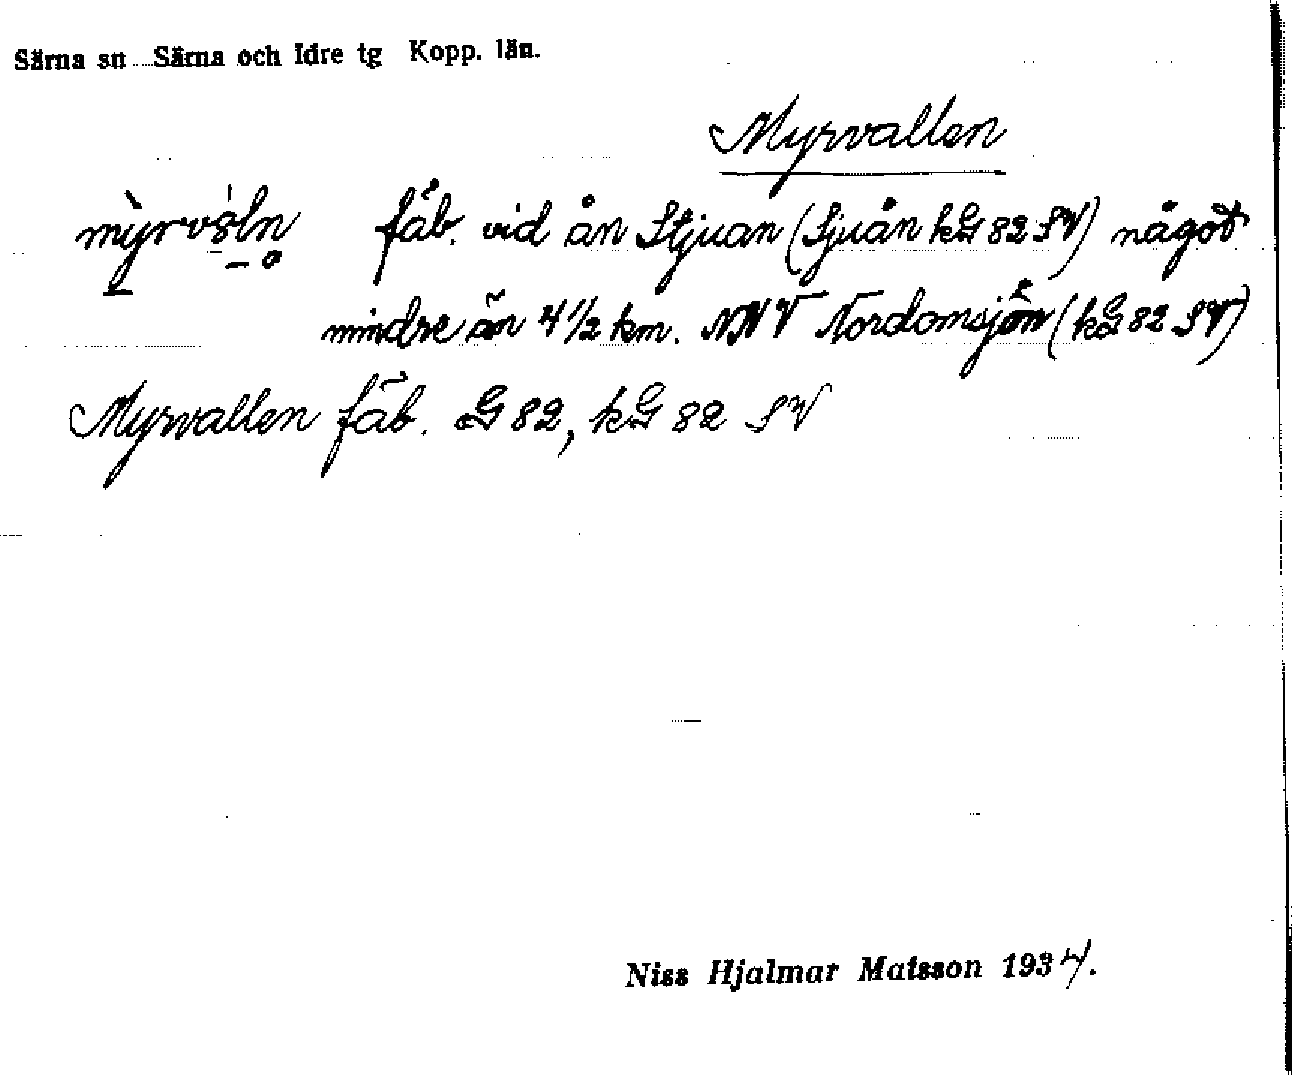 Särna sn Särna och Idre tg Kopp. län.
Myrvallen
fäb. vid ån Stjuan (Sjuån kG 82 SV) något
mindre än 4 1/2 km. NNV Nordomsjön (kG 82 SV)
Myrvallen fäb. G 82, kG 82 SV
Niss Hjalmar Matsson 1934.